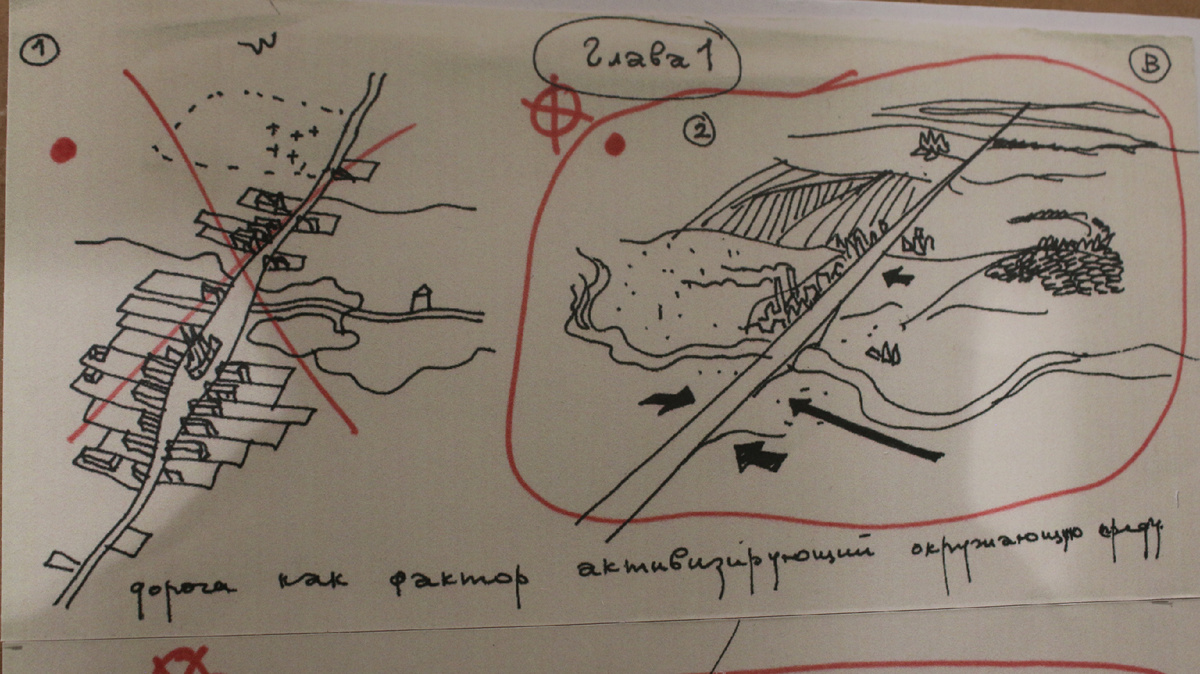 1
Глава 1
В
2
дорога как фактор активизірующий окружающую среду